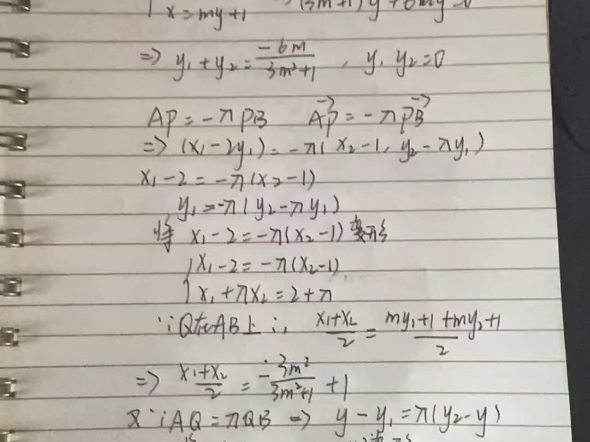 x=my+1 ⇒(3m²+1)y²+6my=0
⇒ y₁+y₂=\frac{-6m}{3m²+1}, y₁y₂=0
AP=-λPB \vec{AP}=-λ\vec{PB}
⇒(x₁-2y₁)=-λ(x₂-1, y₂-λy₁)
x₁-2=-λ(x₂-1)
y₁=-λ(y₂-λy₁)
将 x₁-2=-λ(x₂-1)变形
x₁-2=-λ(x₂-1)
x₁+λx₂=2+λ
∵Q在AB上∴ \frac{x₁+x₂}{2}=\frac{my₁+1+my₂+1}{2}
⇒ \frac{x₁+x₂}{2}=\frac{-3m²}{3m²+1}+1
又∵AQ=λQB ⇒ y-y₁=λ(y₂-y)